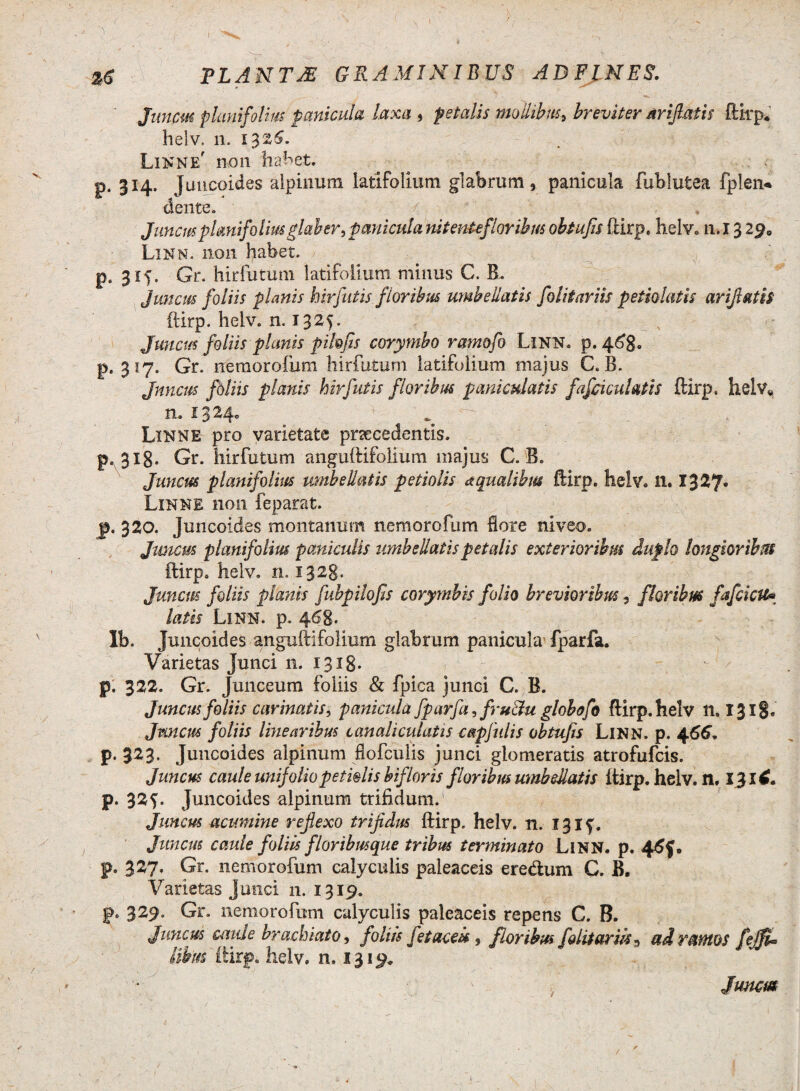 26 PLANTÆ GRAMINIBUS ADFINES.
Juncus planifolius panicula laxa, petalis mollibus, breviter aristatis ſtirp.
helv. n. 1326.
LINNE' non habet.
p. 314. Juncoides alpinum latifolium glabrum, panicula ſublutea ſplen-
dente.
Juncus planifolius glaber, panicula nitente floribus obtuſis ſtirp. helv. n. 1329.
LINN. non habet.
p. 315. Gr. hirſutum latifolium minus C. B.
Juncus foliis planis hirſutis floribus umbellatis ſolitariis petiolatis ariſtatis
ſtirp. helv. n. 1325.
Juncus foliis planis piloſis corymbo ramoſo LINN. p. 468.
p. 317. Gr. nemoroſum hirſutum latifolium majus C. B.
Juncus foliis planis hirſutis floribus paniculatis faſciculatis ſtirp. helv.
n. 1324.
LINNE pro varietate præcedentis.
p. 318. Gr. hirſutum anguſtifolium majus C. B.
Juncus planifolius umbellatis petiolis æqualibus ſtirp. helv. n. 1327.
LINNE non ſeparat.
p. 320. Juncoides montanum nemoroſum flore niveo.
Juncus planifolius paniculis umbellatis petalis exterioribus duplo longioribus
ſtirp. helv. n. 1328.
Juncus foliis planis ſubpiloſis corymbis folio brevioribus, floribus faſcicu-
latis LINN. p. 468.
Ib. Juncoides anguſtifolium glabrum panicula ſparſa.
Varietas Junci n. 1318.
p. 322. Gr. Junceum foliis & ſpica junci C. B.
Juncus foliis carinatis, panicula ſparſa, fructu globoſo ſtirp. helv n. 1318.
Juncus foliis linearibus canaliculatis capſulis obtuſis LINN. p. 466.
p. 323. Juncoides alpinum floſculis junci glomeratis atrofuſcis.
Juncus caule unifolio petiolis bifloris floribus umbellatis ſtirp. helv. n. 1316.
p. 325. Juncoides alpinum trifidum.
Juncus acumine reflexo trifidus ſtirp. helv. n. 1315.
Juncus caule foliis floribusque tribus terminato LINN. p. 465.
p. 327. Gr. nemoroſum calyculis paleaceis erectum C. B.
Varietas Junci n. 1319.
p. 329. Gr. nemoroſum calyculis paleaceis repens C. B.
Juncus caule brachiato, foliis ſetaceis, floribus ſolitariis, ad ramos ſeſſi-
libus ſtirp. helv. n. 1319.
Juncus